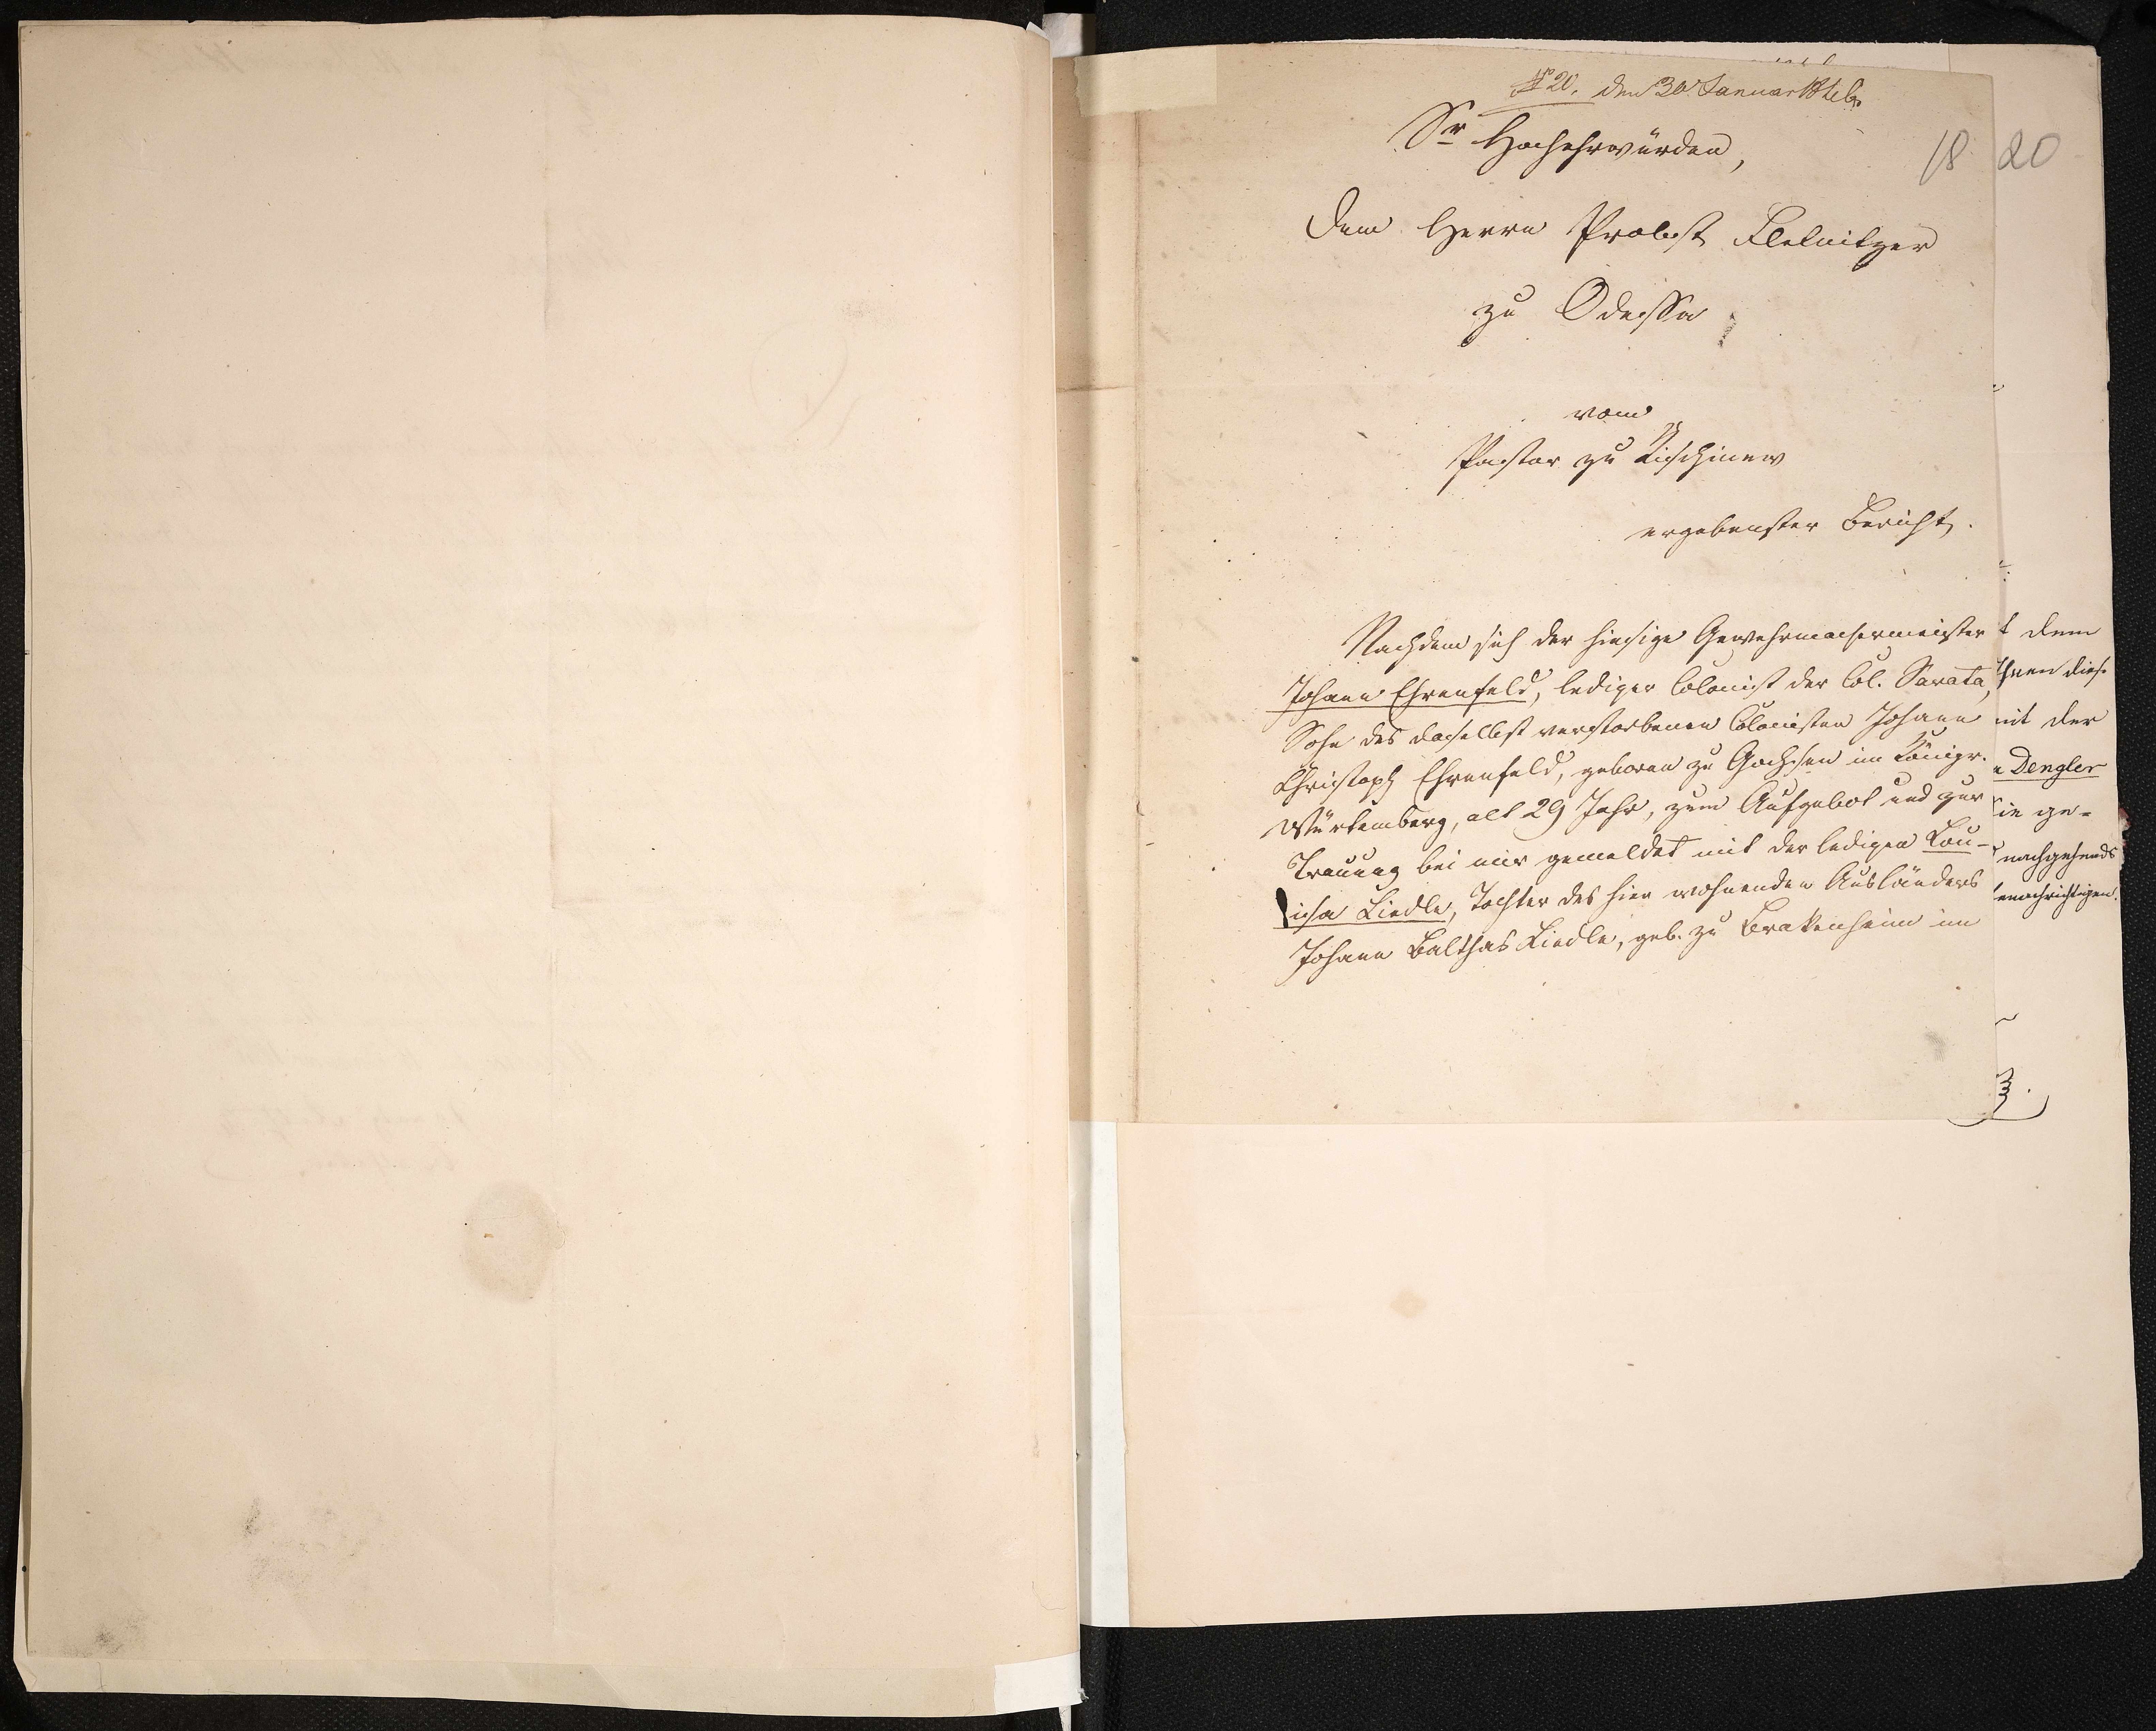 № 20. den 30. Januar 1846.
18 20
Sr Hochehrwürden,
dem Herrn Probst Fletnitzer
zu Odessa
vom
Pastor zu Kischinew
ergebenster Bericht.
Nachdem sich der hiesige Gewehrmachermeister
Johann Ehrenfeld, lediger Colonist der Col. Sarata,
Sohn des daselbst verstorbenen Colonisten Johann
Christoph Ehrenfeld, geboren zu Gochsen im Königr.
Würtemberg, alt 29 Jahr, zum Aufgebot und zur
Trauung bei mir gemeldet mit der ledigen Lou-
isa Liedle, Tochter des hier wohnenden Ausländers
Johann Balthas Liedle, geb. zu Brakenheim im
dem
diese
mit der
Dengler
ge-
nachgehends